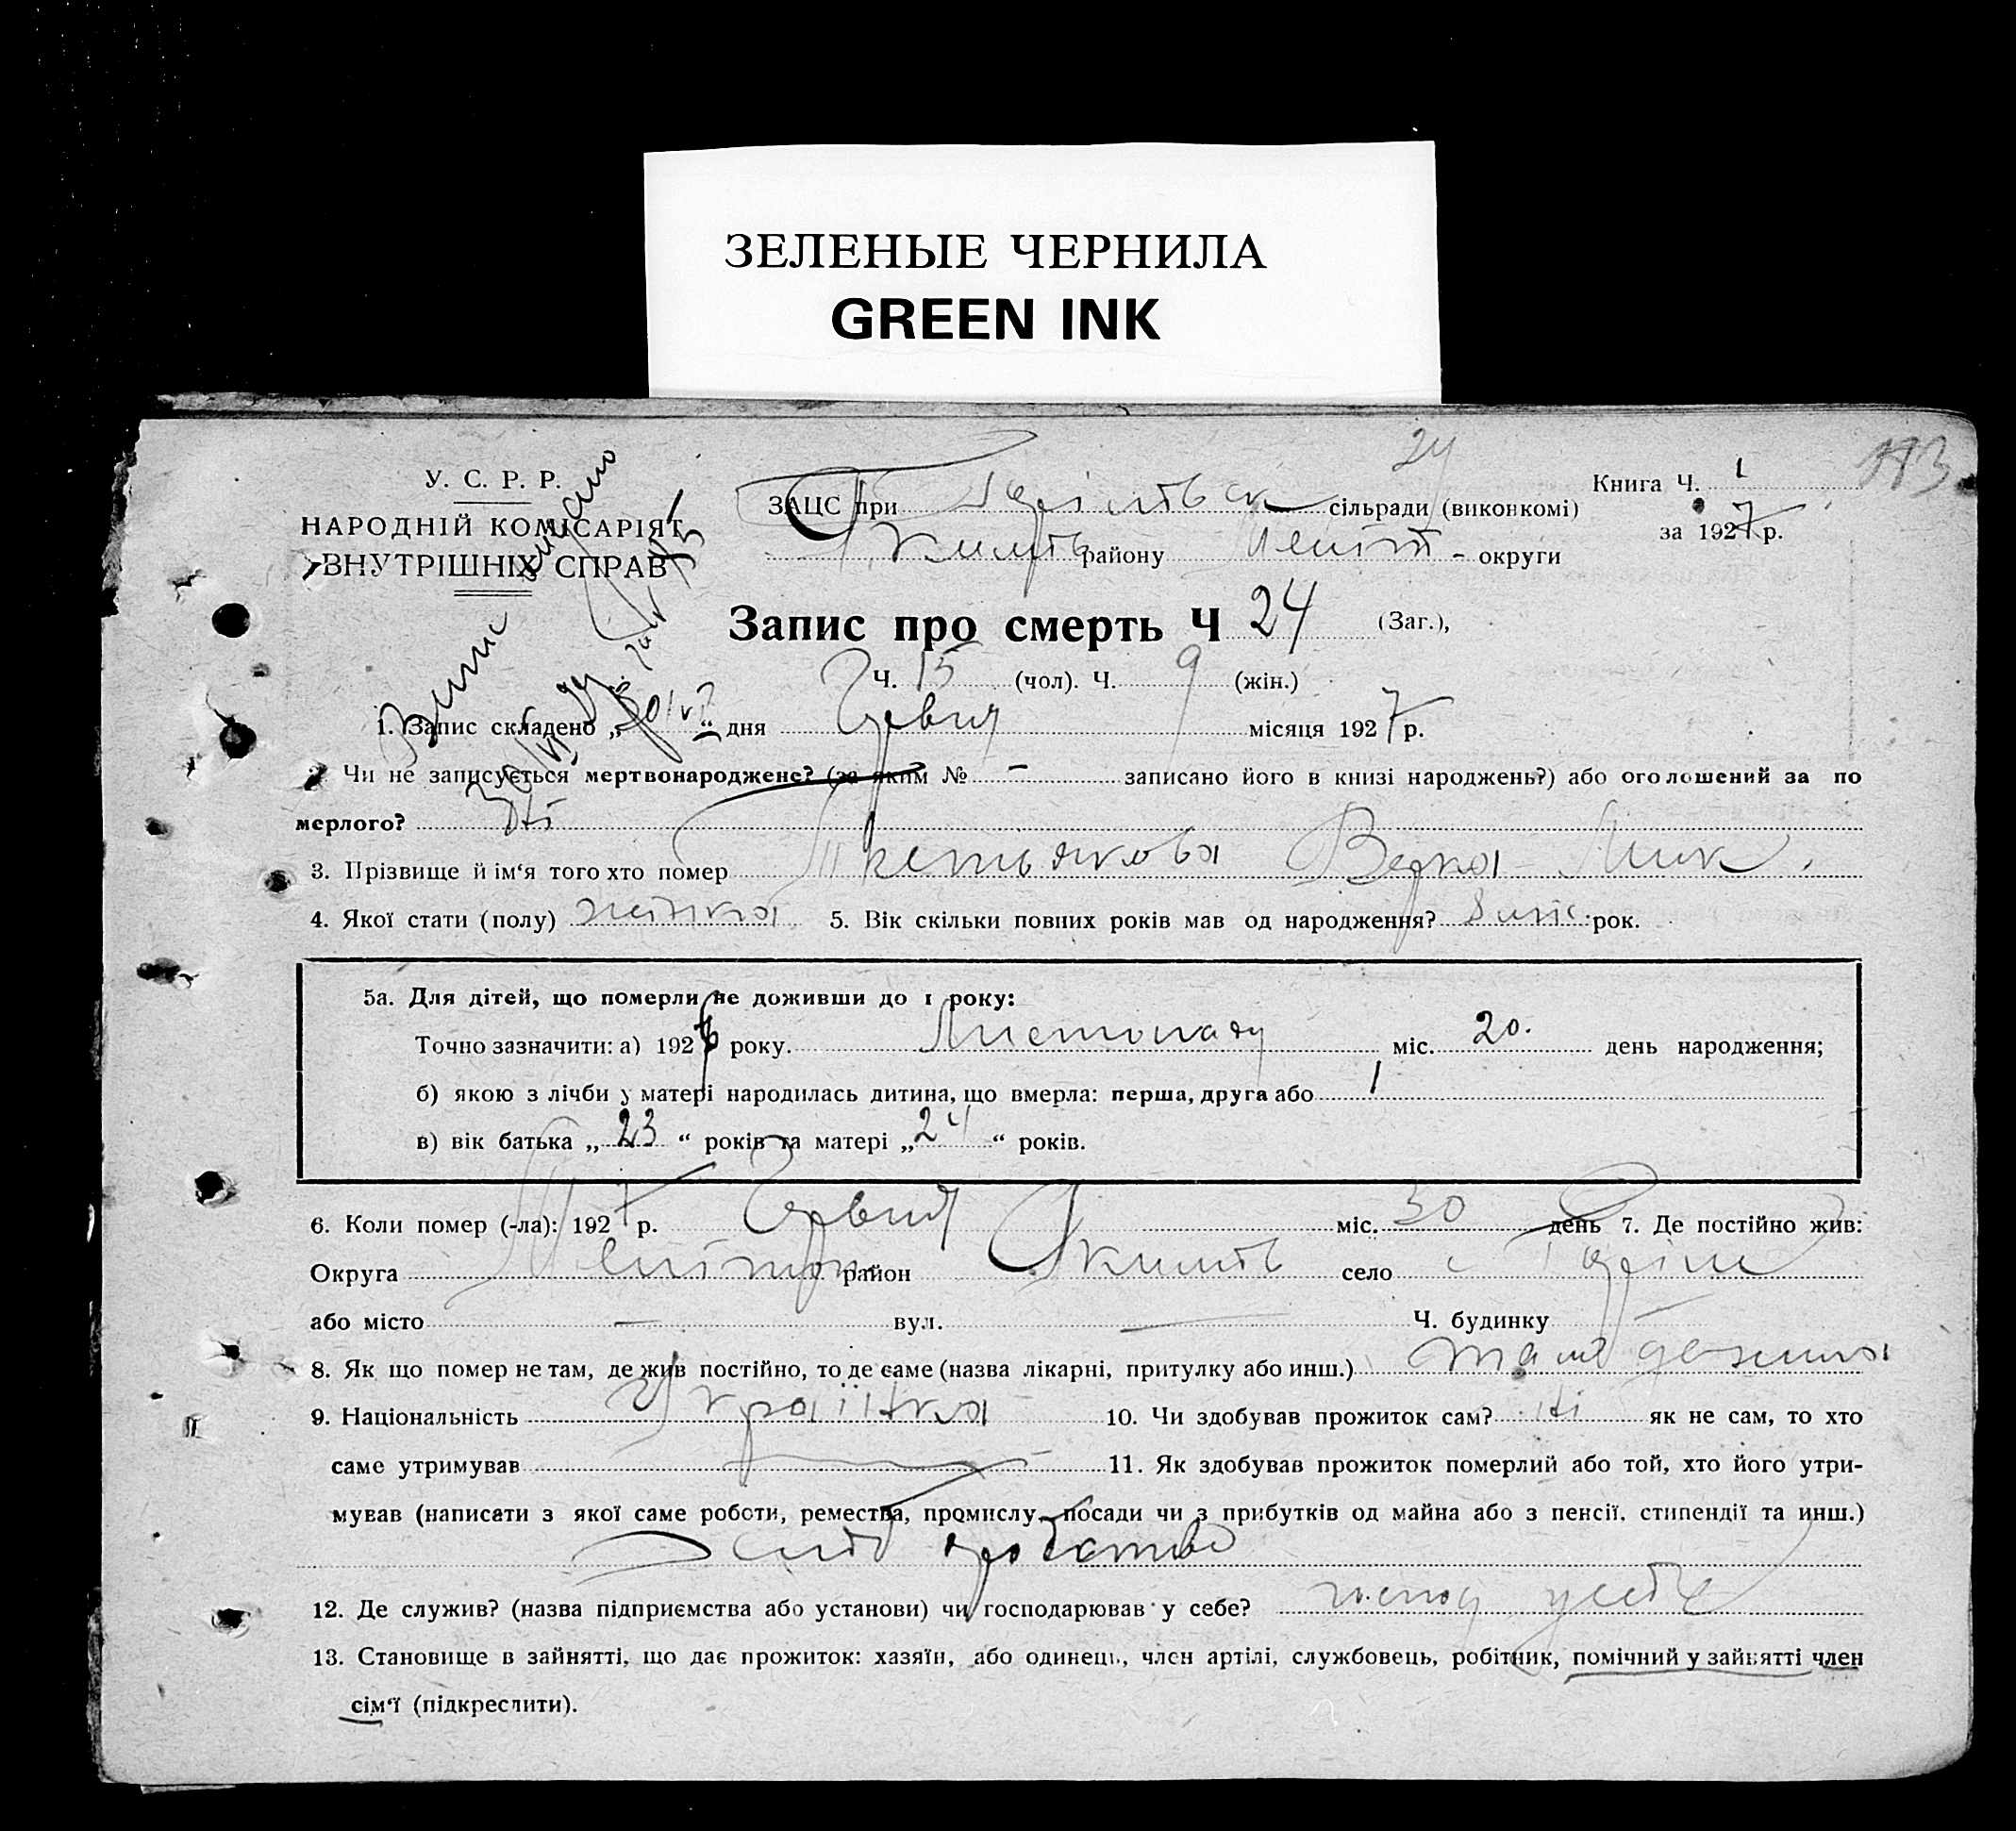 ЗЕЛЕНЫЕ ЧЕРНИЛА
GREEN INK
24
173
У. С. Р. Р.
НАРОДНІЙ КОМІСАРІЯТ
ВНУТРІШНІХ СПРАВ
ЗАЦС при сільради (виконкомі)
району округи
Книга Ч. 1
за 1927 р.
Запис про смерть Ч 24 (Заг.),
Ч. 15 (чол). Ч. 9 (жін.)
1. Запис складено „30/VI“ дня Червня місяця 1927 р.
2. Чи не записується мертвонароджене? (за яким № – записано його в книзі народжень?) або оголошений за по
мерлого? Ні
3. Прізвище й ім‘я того хто помер Третьякова Вера Мик.
4. Якої стати (полу) жінка 5. Вік скільки повних років мав од народження? 8 міс. рок.
5а. Для дітей, що померли не доживши до 1 року:
Точно зазначити: а) 1926 року. Листопаду міс. 20. день народження;
б) якою з лічби у матері народилась дитина, що вмерла: перша, друга або 1
в) вік батька „23“ років та матері „24“ років.
6. Коли помер (-ла): 1927 р. Червня міс. 30 день 7. Де постійно жив:
Округа Меліт район Якимів село
або місто — вул. — Ч. будинку
8. Як що помер не там, де жив постійно, то де саме (назва лікарні, притулку або инш.) там де жила
9. Національність Українка 10. Чи здобував прожиток сам? ні як не сам, то хто
саме утримував 11. Як здобував прожиток померлий або той, хто його утри-
мував (написати з якої саме роботи, ремества, промислу, посади чи з прибутків од майна або з пенсії, стипендії та инш.)
Хліборобство
12. Де служив? (назва підприємства або установи) чи господарював у себе? господ у себе
13. Становище в зайнятті, що дає прожиток: хазяїн, або одинець, член артілі, службовець, робітник, помічний у зайнятті член
сім‘ї (підкреслити).